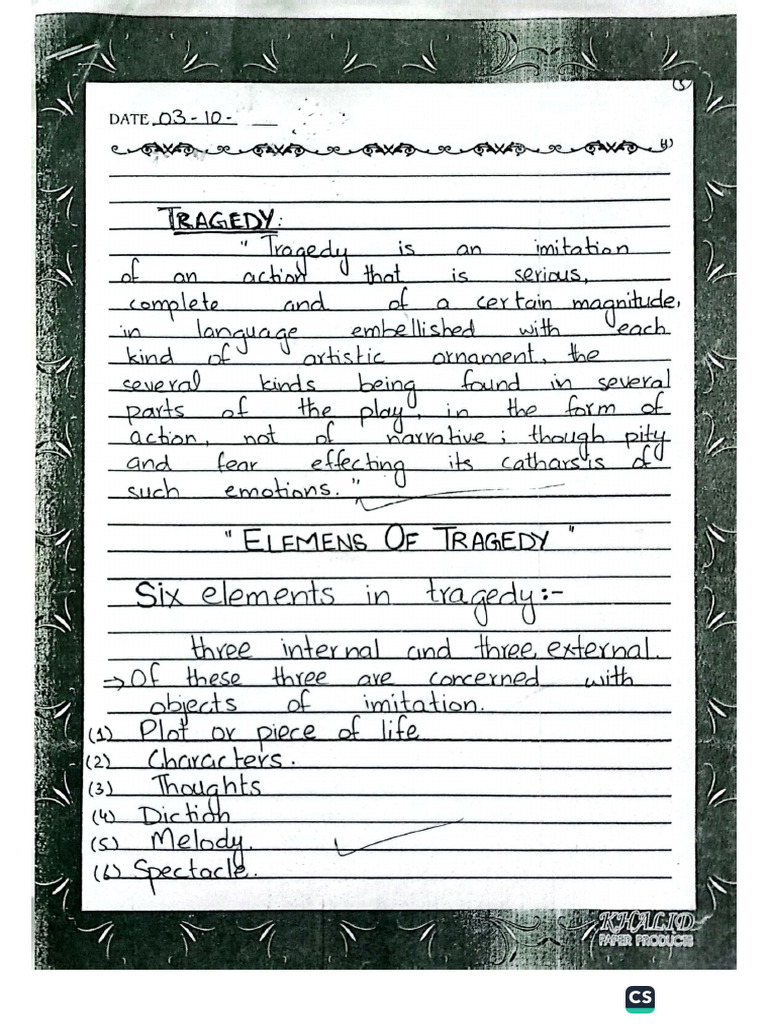 (5)
DATE 03-10-
4)
TRAGEDY:
" Tragedy is an imitation
of an action that is serious,
complete and of a certain magnitude,
in language embellished with each
kind of artistic ornament, the
several kinds being found in several
parts of the play, in the form of
action, not of narrative; though pity
and fear effecting its catharsis of
such emotions. "
" ELEMENS OF TRAGEDY "
Six elements in tragedy:-
three internal and three external.
→ Of these three are concerned with
objects of imitation.
(1) Plot or piece of life
(2) Characters.
(3) Thoughts
(4) Diction
(5) Melody.
(6) Spectacle.
KHALID
PAPER PRODUCTS
CS